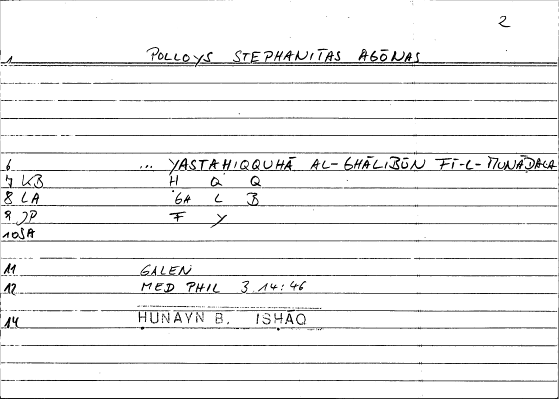 2
1 POLLOYS STEPHANITAS AGŌNAS
6 ... YASTAHIQQUHĀ AL-GHĀLIBŪN FĪ-L-MUNĀḌALA
7 KB H Q Q
8 LA GA L B
9 JP F Y
10 SA
11 GALEN
12 MED PHIL 3.14:46
14 HUNAYN B. ISHĀQ